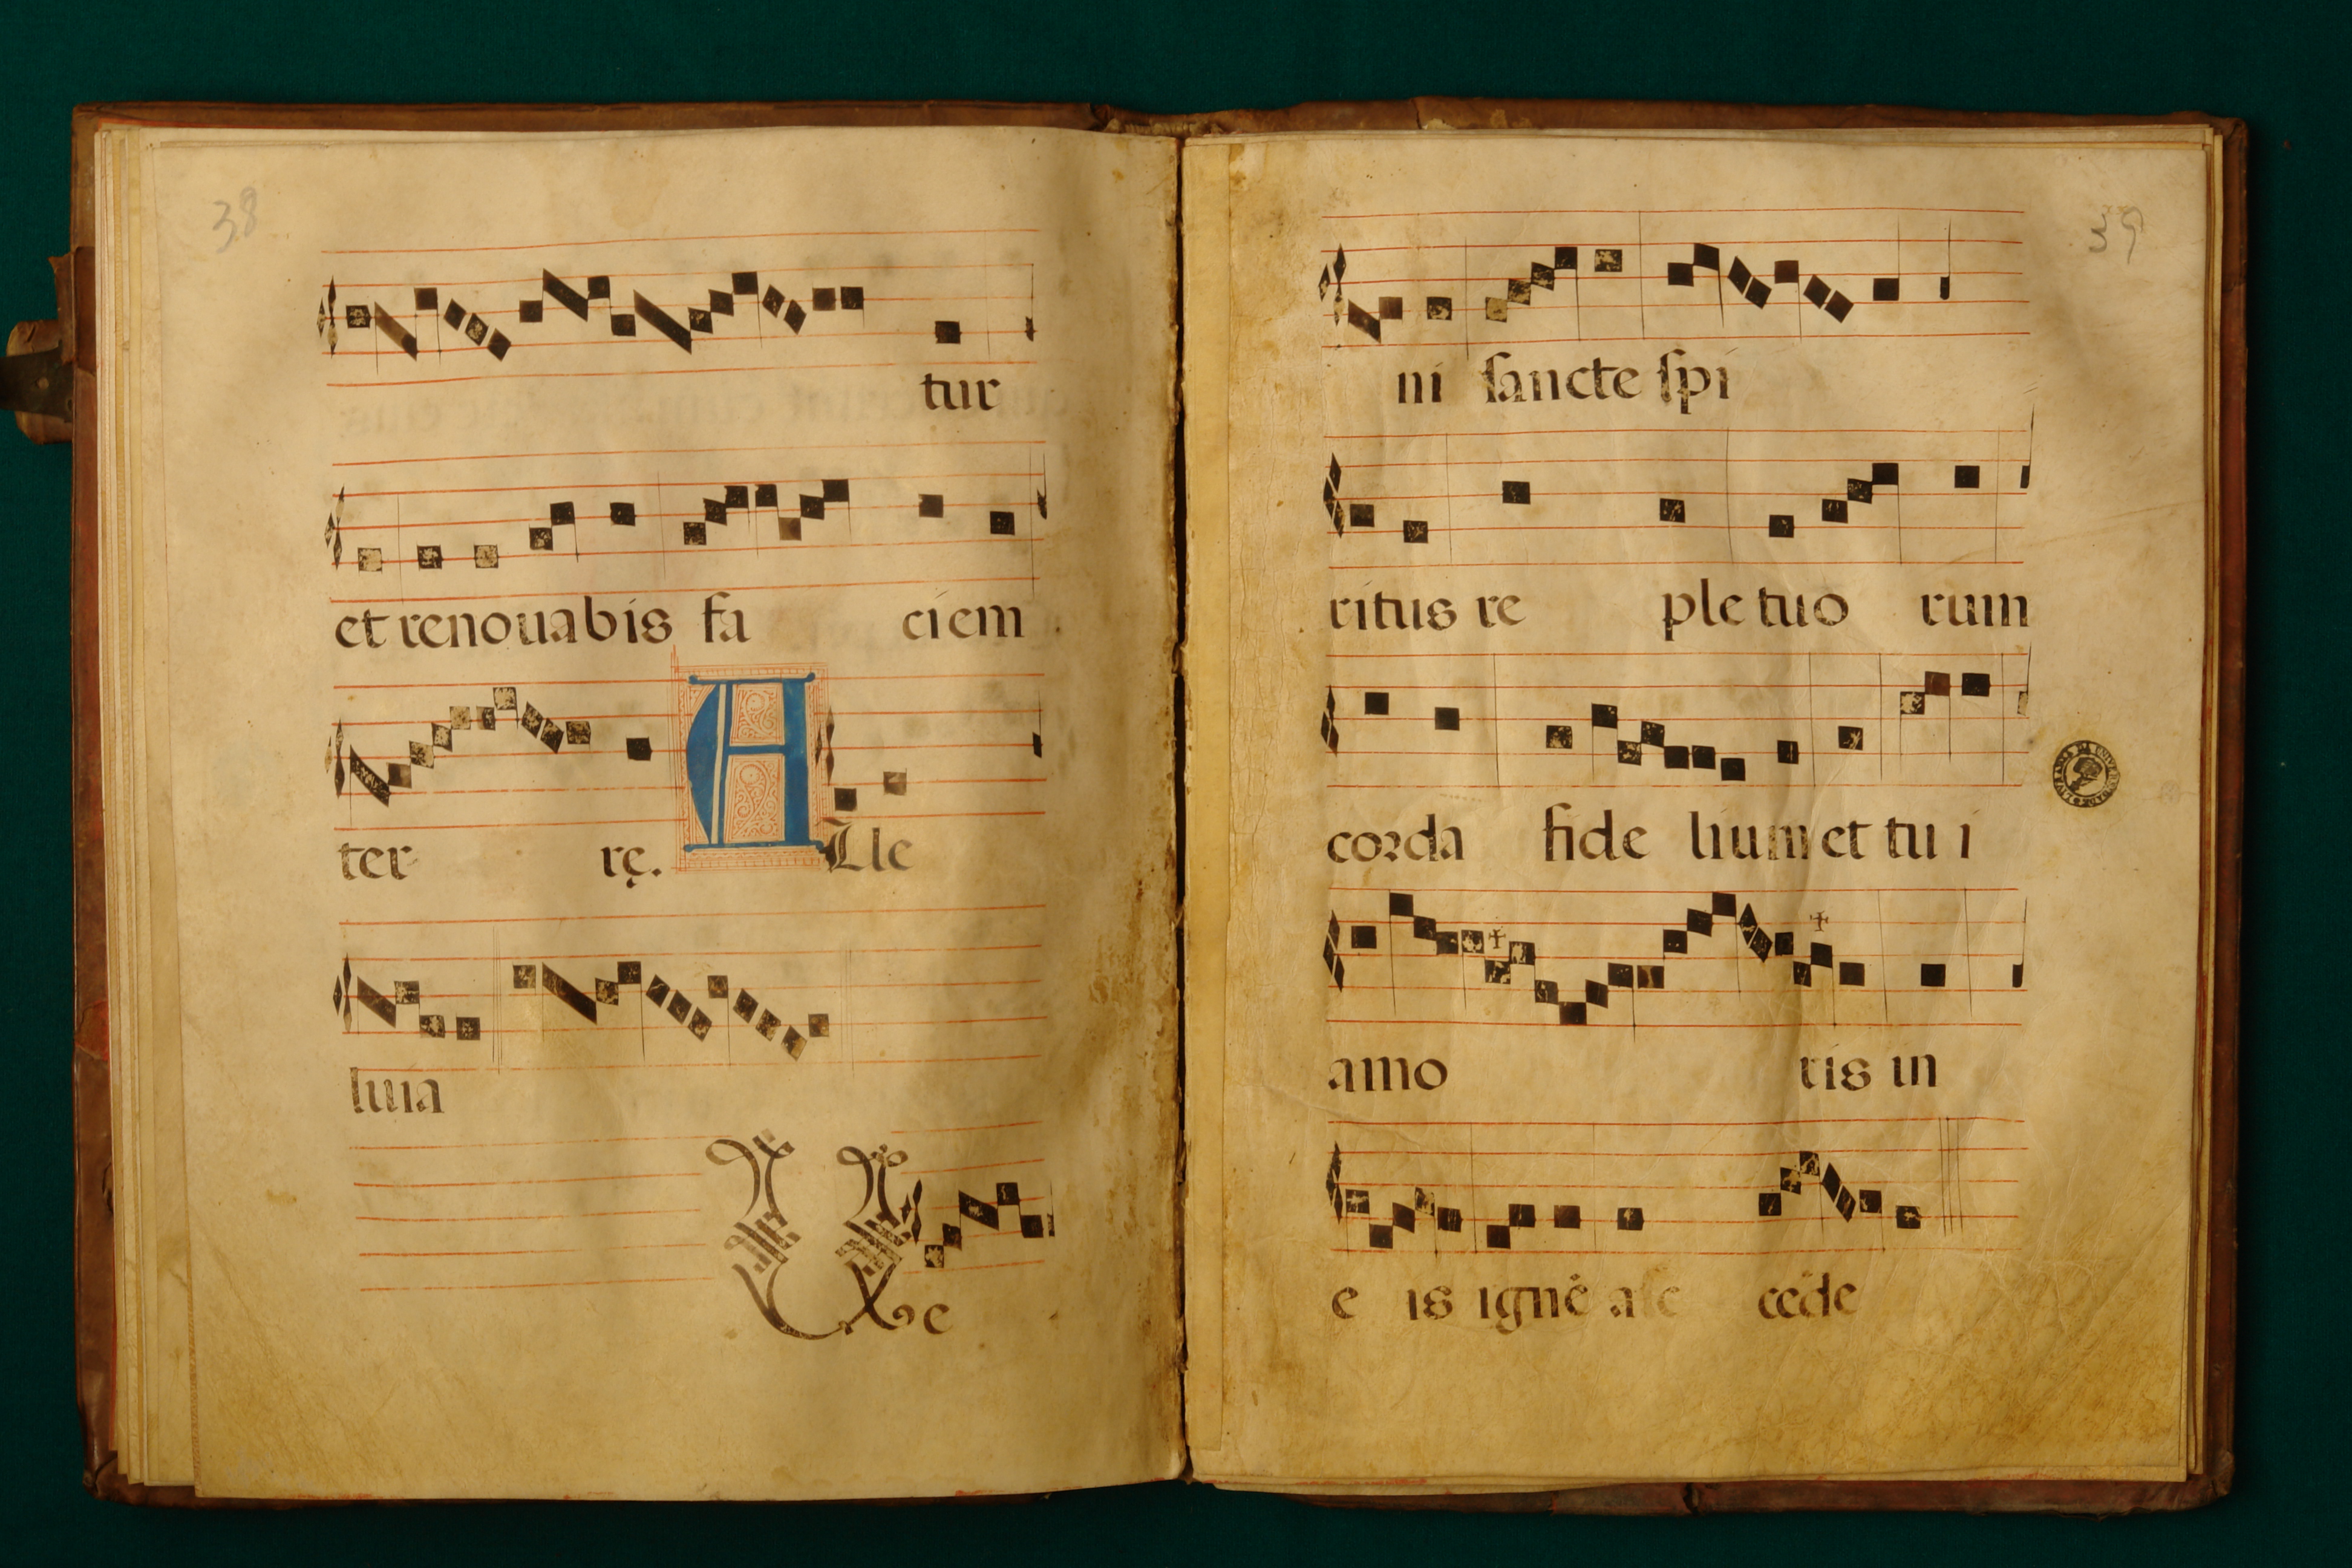 38
tur
et renouabis fa ciem
ter rę. Alle
luia
Ve
39
ni sancte spi
ritus re ple tuo rum
corda fide lium et tu i
amo ris in
e is ignē accēde